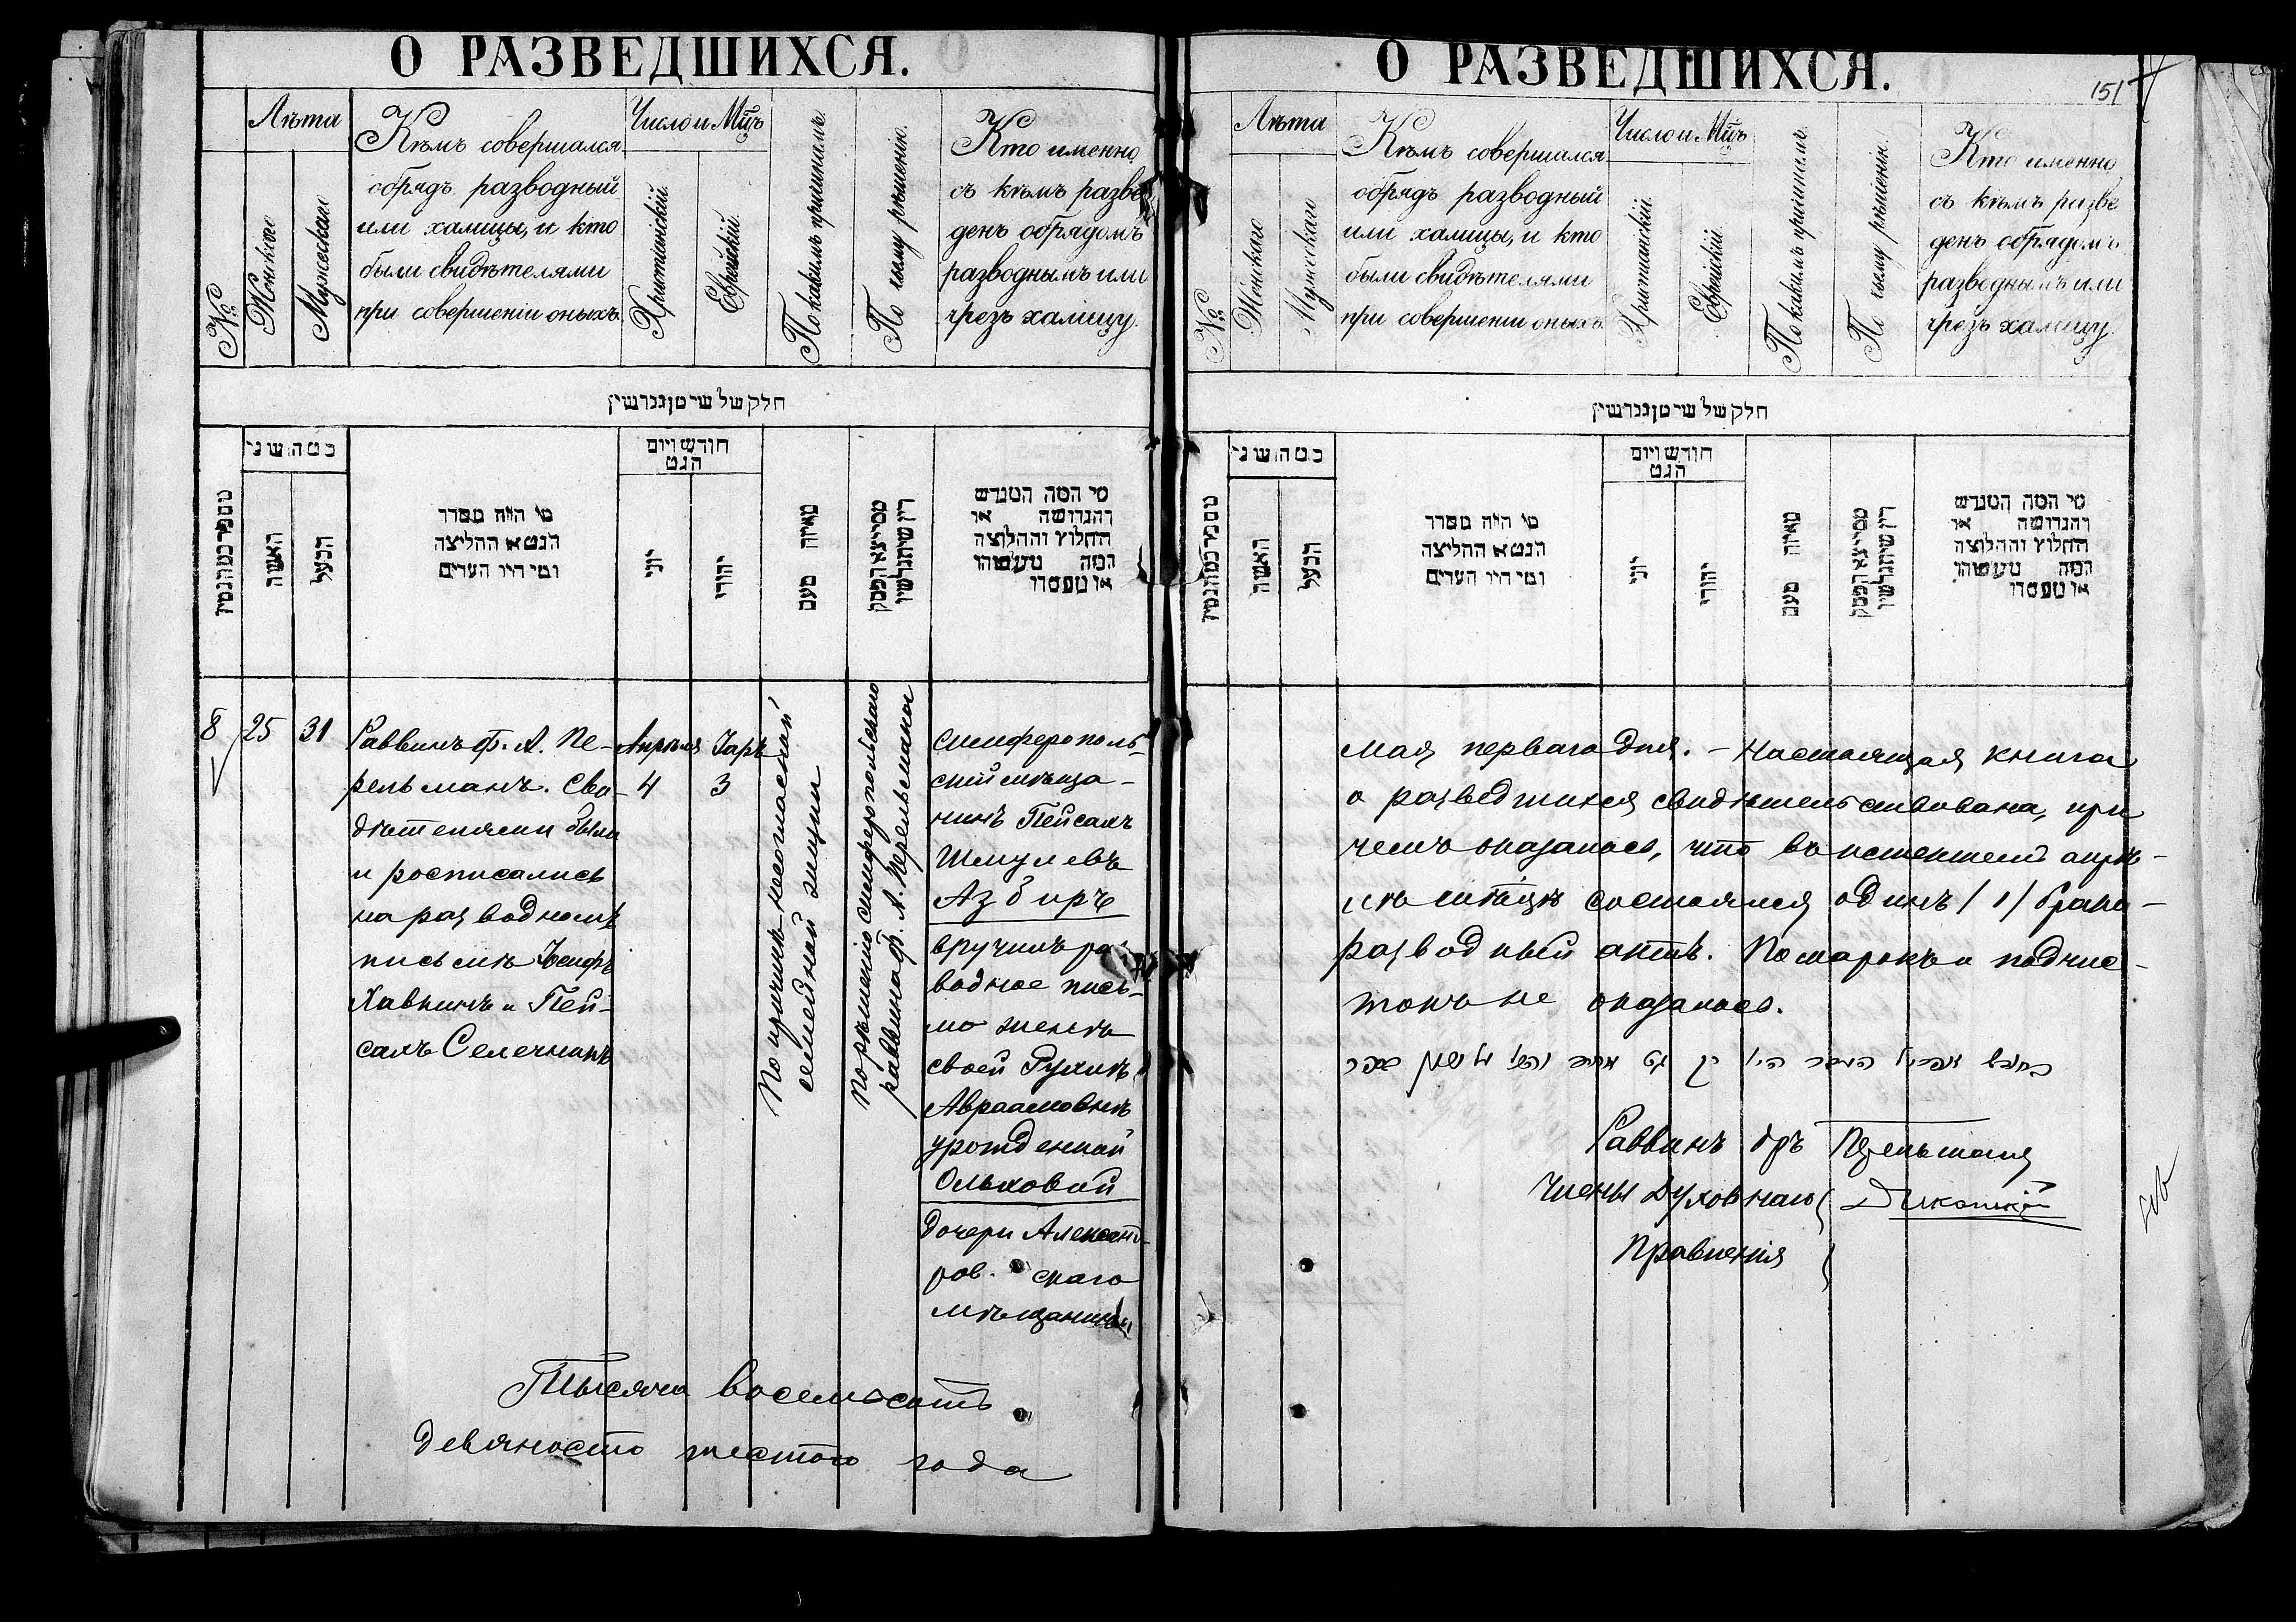 О РАЗВЕДШИХСЯ.
№
Лѣта
Женскаго
Мужескаго
Кѣмъ совершался
обрядъ разводный
или халицы, и кто
были свидѣтелями
при совершеніи оныхъ.
Число и Мцъ
Христіанскій.
Еврейскій.
По какимъ причинамъ.
По чьему рѣшенію.
Кто именно
съ кѣмъ разве
денъ обрядомъ
разводнымъ или
чрезъ халицу.
חלק של שיטן גגרשין
האשה
הבעל
מי היה מסדר
הגט או החליצה
ומי היו העדים
חודש ויום
הגט
יוני
יהודי
מאיזה טעם
8
25
31
Раввинъ Ф. А. Пе-
рельманъ. Сви-
дѣтелями были
и росписались
на разводномъ
письмѣ Іосифъ
Хавкинъ и Пей-
сахъ Селечникъ
Апрѣля
4
Іаръ
3
По причинѣ несогласной
семейной жизни
По рѣшенію симферопольскаго
раввина Ф. А. Перельмана
Симферополь-
скій мѣща-
нинъ Пейсахъ
Шмулевъ
Азбиръ
вручилъ раз
водное пись-
мо женѣ
своей Рухлѣ
Авраамовнѣ
урожденной
Ольховой
дочери Александ-
ров. скаго
мѣщанина
Тысяча восемьсотъ
девяносто шестого года
О РАЗВЕДШИХСЯ.
151
№
Лѣта
Женскаго
Мужескаго
Кѣмъ совершался
обрядъ разводный
или халицы, и кто
были свидѣтелями
при совершеніи оныхъ.
Число и Мцъ
Христіанскій.
Еврейскій.
По какимъ причинамъ.
По чьему рѣшенію.
Кто именно
съ кѣмъ разве
денъ обрядомъ
разводнымъ или
чрезъ халицу
חלק של שיטן גגרשין
האשה
הבעל
מי היה מסדר
הגט או החליצה
ומי היו העדים
חודש ויום
הגט
יוני
יהודי
מאיזה טעם
мая перваго дня. – Настоящая книга
о разведшихся свидѣтельствована, при
чемъ оказалось, что въ истекшемъ апрѣ-
лѣ мѣсяцѣ состоялся одинъ /1/ брако-
разводный актъ. Помарокъ и подчис-
токъ не оказалось.
Раввинъ дръ Перельманъ
Члены Духовнаго
Правленія